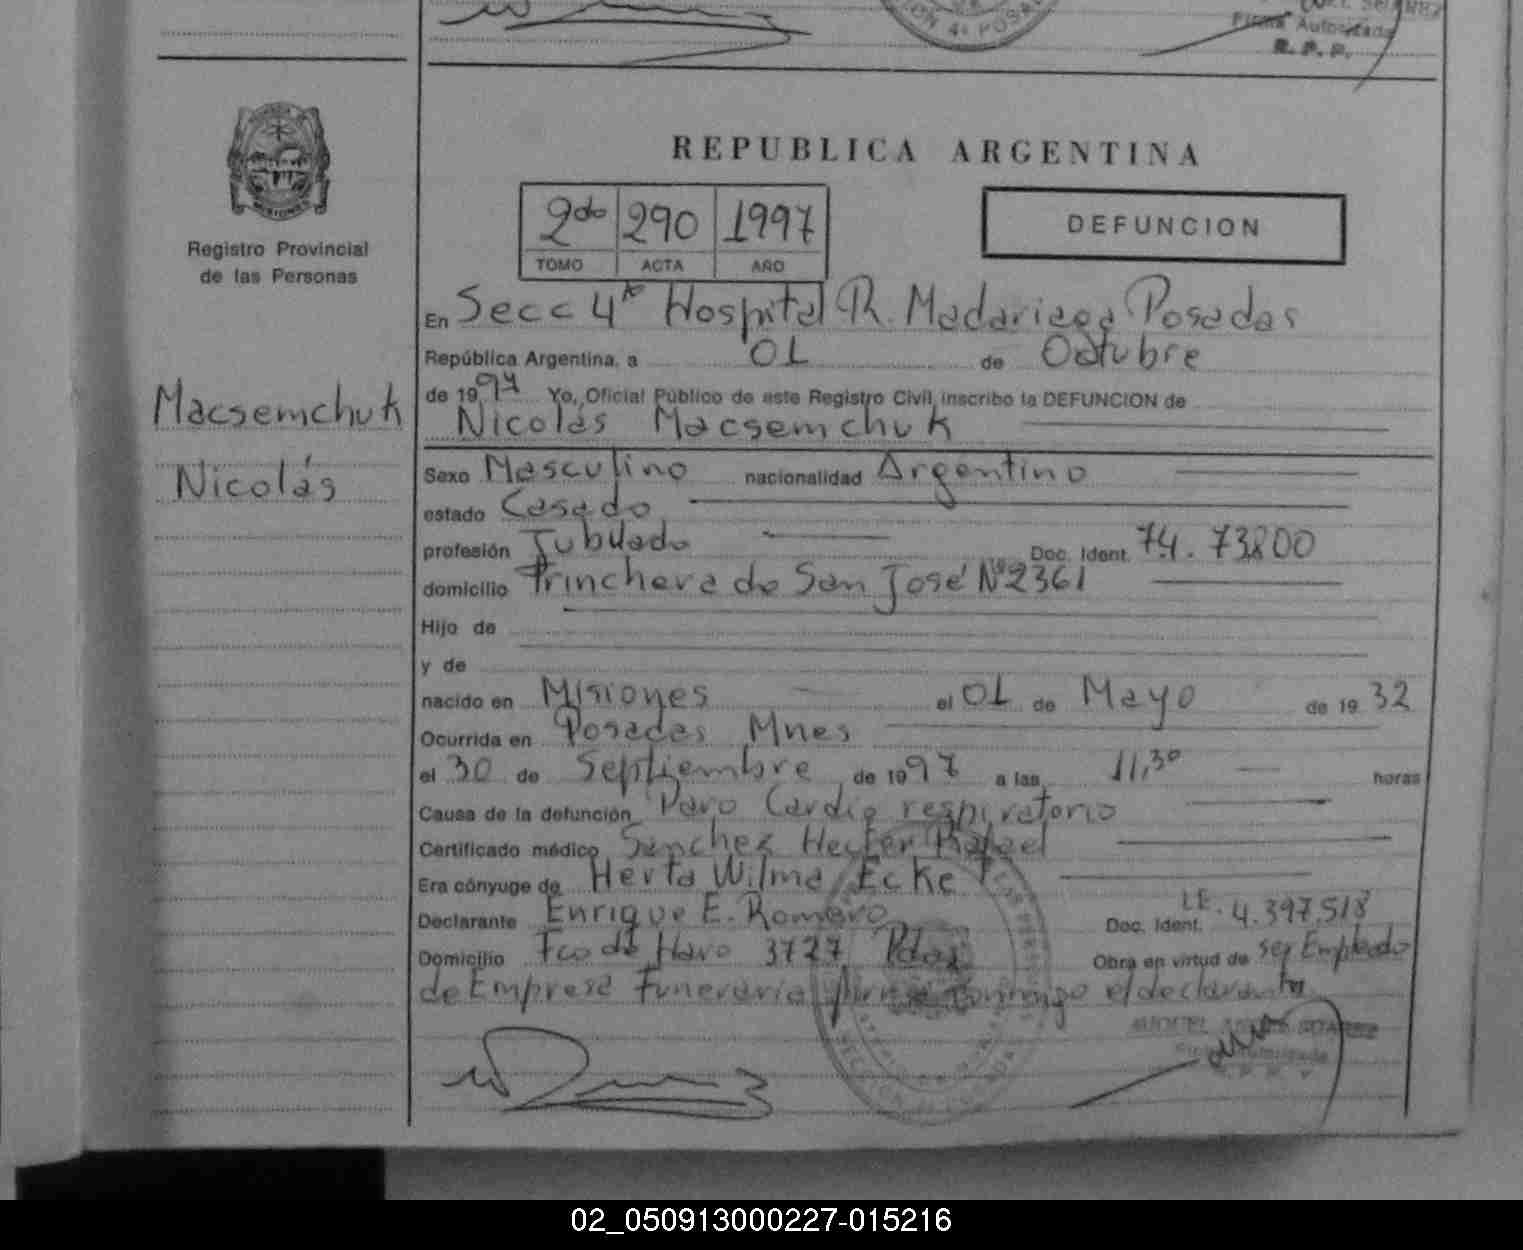 Firma Autorizada
R. P. P.
REPUBLICA ARGENTINA
2do 290 1997
TOMO ACTA AÑO
DEFUNCION
MISIONES
Registro Provincial
de las Personas
En Secc 4ta Hospital R. Madariaga Posadas
República Argentina, a 01 de Octubre
de 1997 Yo, Oficial Público de este Registro Civil, inscribo la DEFUNCION de
Nicolás Macsemchuk
Macsemchuk
Nicolás
Sexo Masculino nacionalidad Argentino
estado Casado
profesión Jubilado Doc. Ident. 74.73800
domicilio Trinchera de San José Nº 2361
Hijo de
y de
nacido en Misiones el 01 de Mayo de 1932
Ocurrida en Posadas Mnes
el 30 de Septiembre de 1997 a las 11,30 horas
Causa de la defunción Paro Cardio respiratorio
Certificado médico Sanchez Hector Rafael
Era cónyuge de Herta Wilma Ecke
Declarante Enrique E. Romero Doc. Ident. L.E. 4.397.518
Domicilio Fco de Haro 3727 Pdas Obra en virtud de ser Empleado
de Empresa Funeraria firma conmigo el declarante
02_050913000227-015216